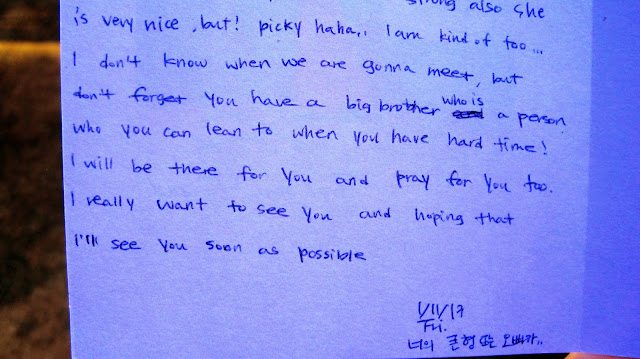 strong also she
is very nice, but! picky haha,, I am kind of too...
I don't know when we are gonna meet, but
don't forget you have a big brother who is a person
who you can lean to when you have hard time!
I will be there for you and pray for you too.
I really want to see you and hoping that
I'll see you soon as possible
1/11/17
Fri.
너의 큰형 또는 오빠가..